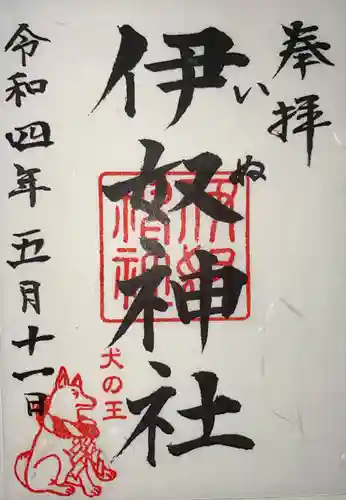 奉拝
伊奴神社
いぬ
犬の王
令和四年五月十一日